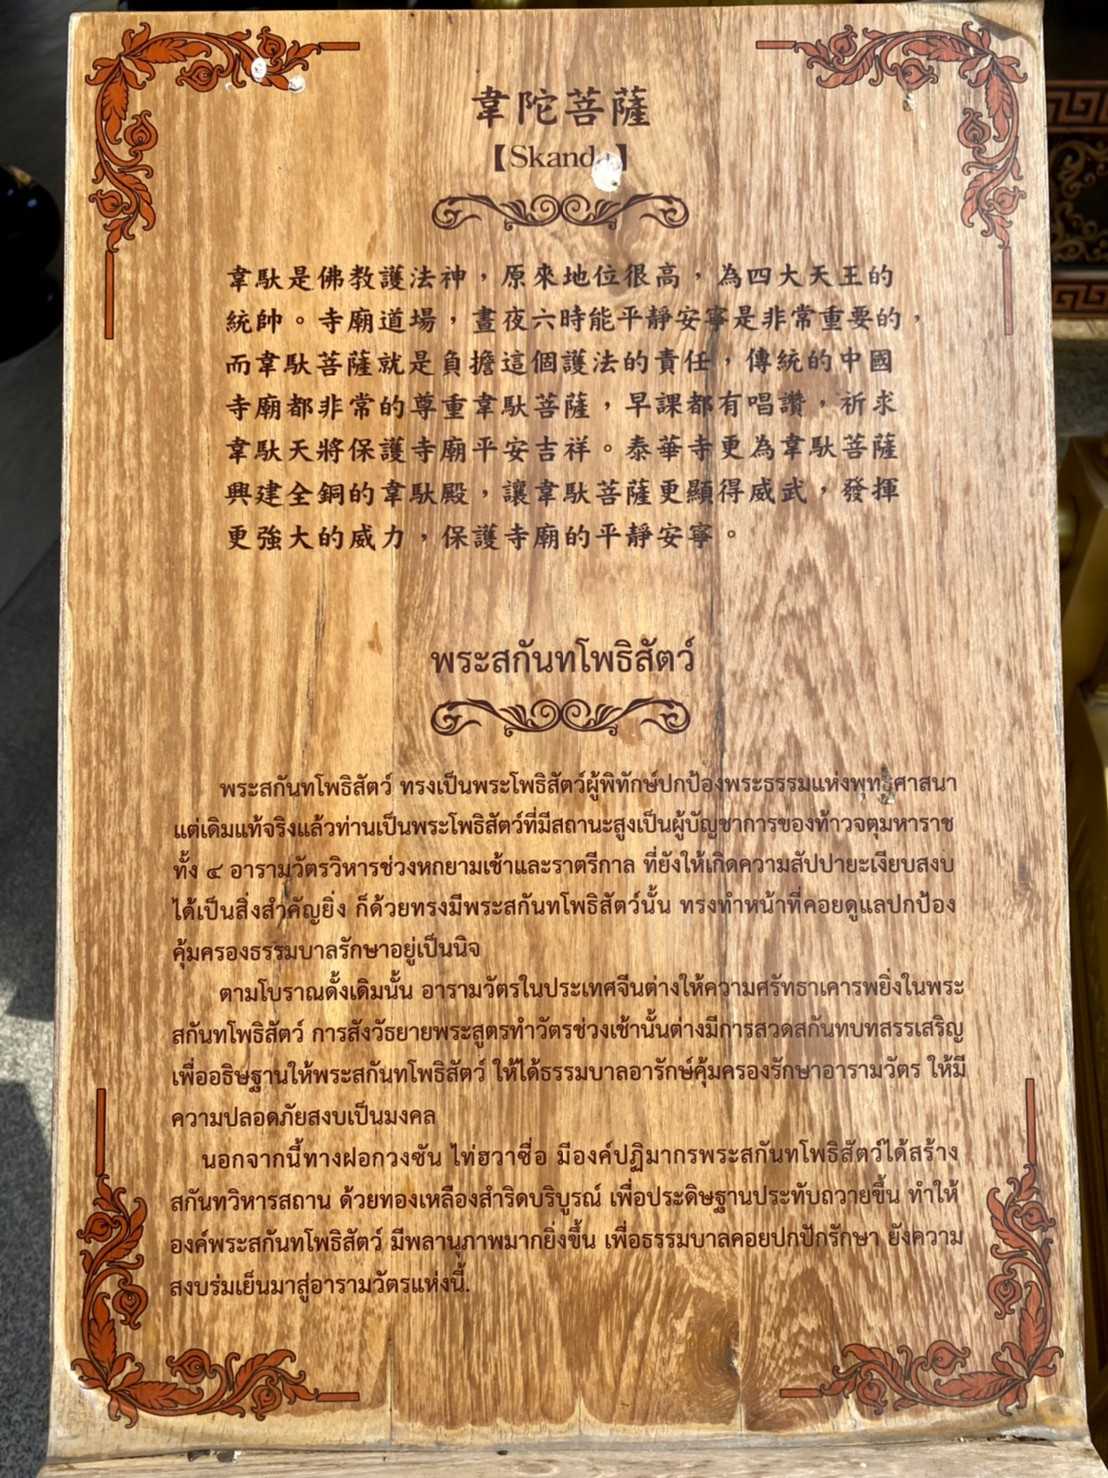 韋陀菩薩
【Skanda】
韋馱是佛教護法神，原來地位很高，為四大天王的
統帥。寺廟道場，晝夜六時能平靜安寧是非常重要的，
而韋馱菩薩就是負擔這個護法的責任，傳統的中國
寺廟都非常的尊重韋馱菩薩，早課都有唱讚，祈求
韋馱天將保護寺廟平安吉祥。泰華寺更為韋馱菩薩
興建全銅的韋馱殿，讓韋馱菩薩更顯得威武，發揮
更強大的威力，保護寺廟的平靜安寧。
พระสกันทโพธิสัตว์
พระสกันทโพธิสัตว์ ทรงเป็นพระโพธิสัตว์ผู้พิทักษ์ปกป้องพระธรรมแห่งพุทธศาสนา
แต่เดิมแท้จริงแล้วท่านเป็นพระโพธิสัตว์ที่มีสถานะสูงเป็นผู้บัญชาการของท้าวจตุมหาราช
ทั้ง ๔ อารามวัตรวิหารช่วงหกยามเช้าและราตรีกาล ที่ยังให้เกิดความสัปปายะเงียบสงบ
ได้เป็นสิ่งสำคัญยิ่ง ก็ด้วยทรงมีพระสกันทโพธิสัตว์นั้น ทรงทำหน้าที่คอยดูแลปกป้อง
คุ้มครองธรรมบาลรักษาอยู่เป็นนิจ
ตามโบราณดั้งเดิมนั้น อารามวัตรในประเทศจีนต่างให้ความศรัทธาเคารพยิ่งในพระ
สกันทโพธิสัตว์ การสังวัธยายพระสูตรทำวัตรช่วงเช้านั้นต่างมีการสวดสกันทบทสรรเสริญ
เพื่ออธิษฐานให้พระสกันทโพธิสัตว์ ให้ได้ธรรมบาลอารักษ์คุ้มครองรักษาอารามวัตร ให้มี
ความปลอดภัยสงบเป็นมงคล
นอกจากนี้ทางฝอกวงซัน ไท่ฮวาซื่อ มีองค์ปฏิมากรพระสกันทโพธิสัตว์ได้สร้าง
สกันทวิหารสถาน ด้วยทองเหลืองสำริดบริบูรณ์ เพื่อประดิษฐานประทับถวายขึ้น ทำให้
องค์พระสกันทโพธิสัตว์ มีพลานุภาพมากยิ่งขึ้น เพื่อธรรมบาลคอยปกปักรักษา ยังความ
สงบร่มเย็นมาสู่อารามวัตรแห่งนี้.